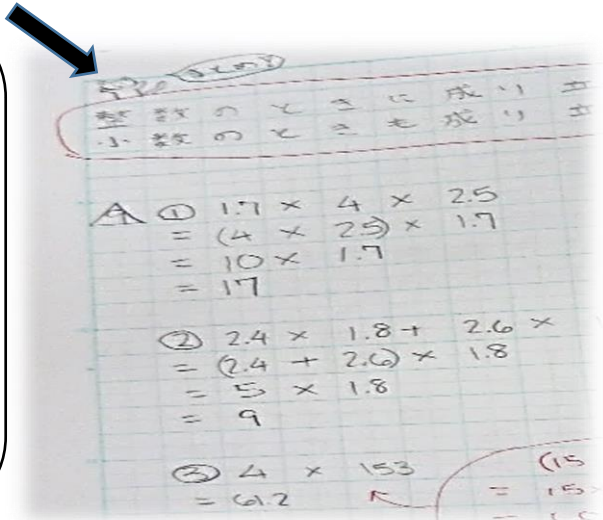 整数のときに成り立
小数のときも成り立
A ① 1.7 × 4 × 2.5
= (4 × 25) × 1.7
= 10 × 1.7
= 17
② 2.4 × 1.8 + 2.6 ×
= (2.4 + 2.6) × 1.8
= 5 × 1.8
= 9
③ 4 × 153
= 61.2
(15
= 15